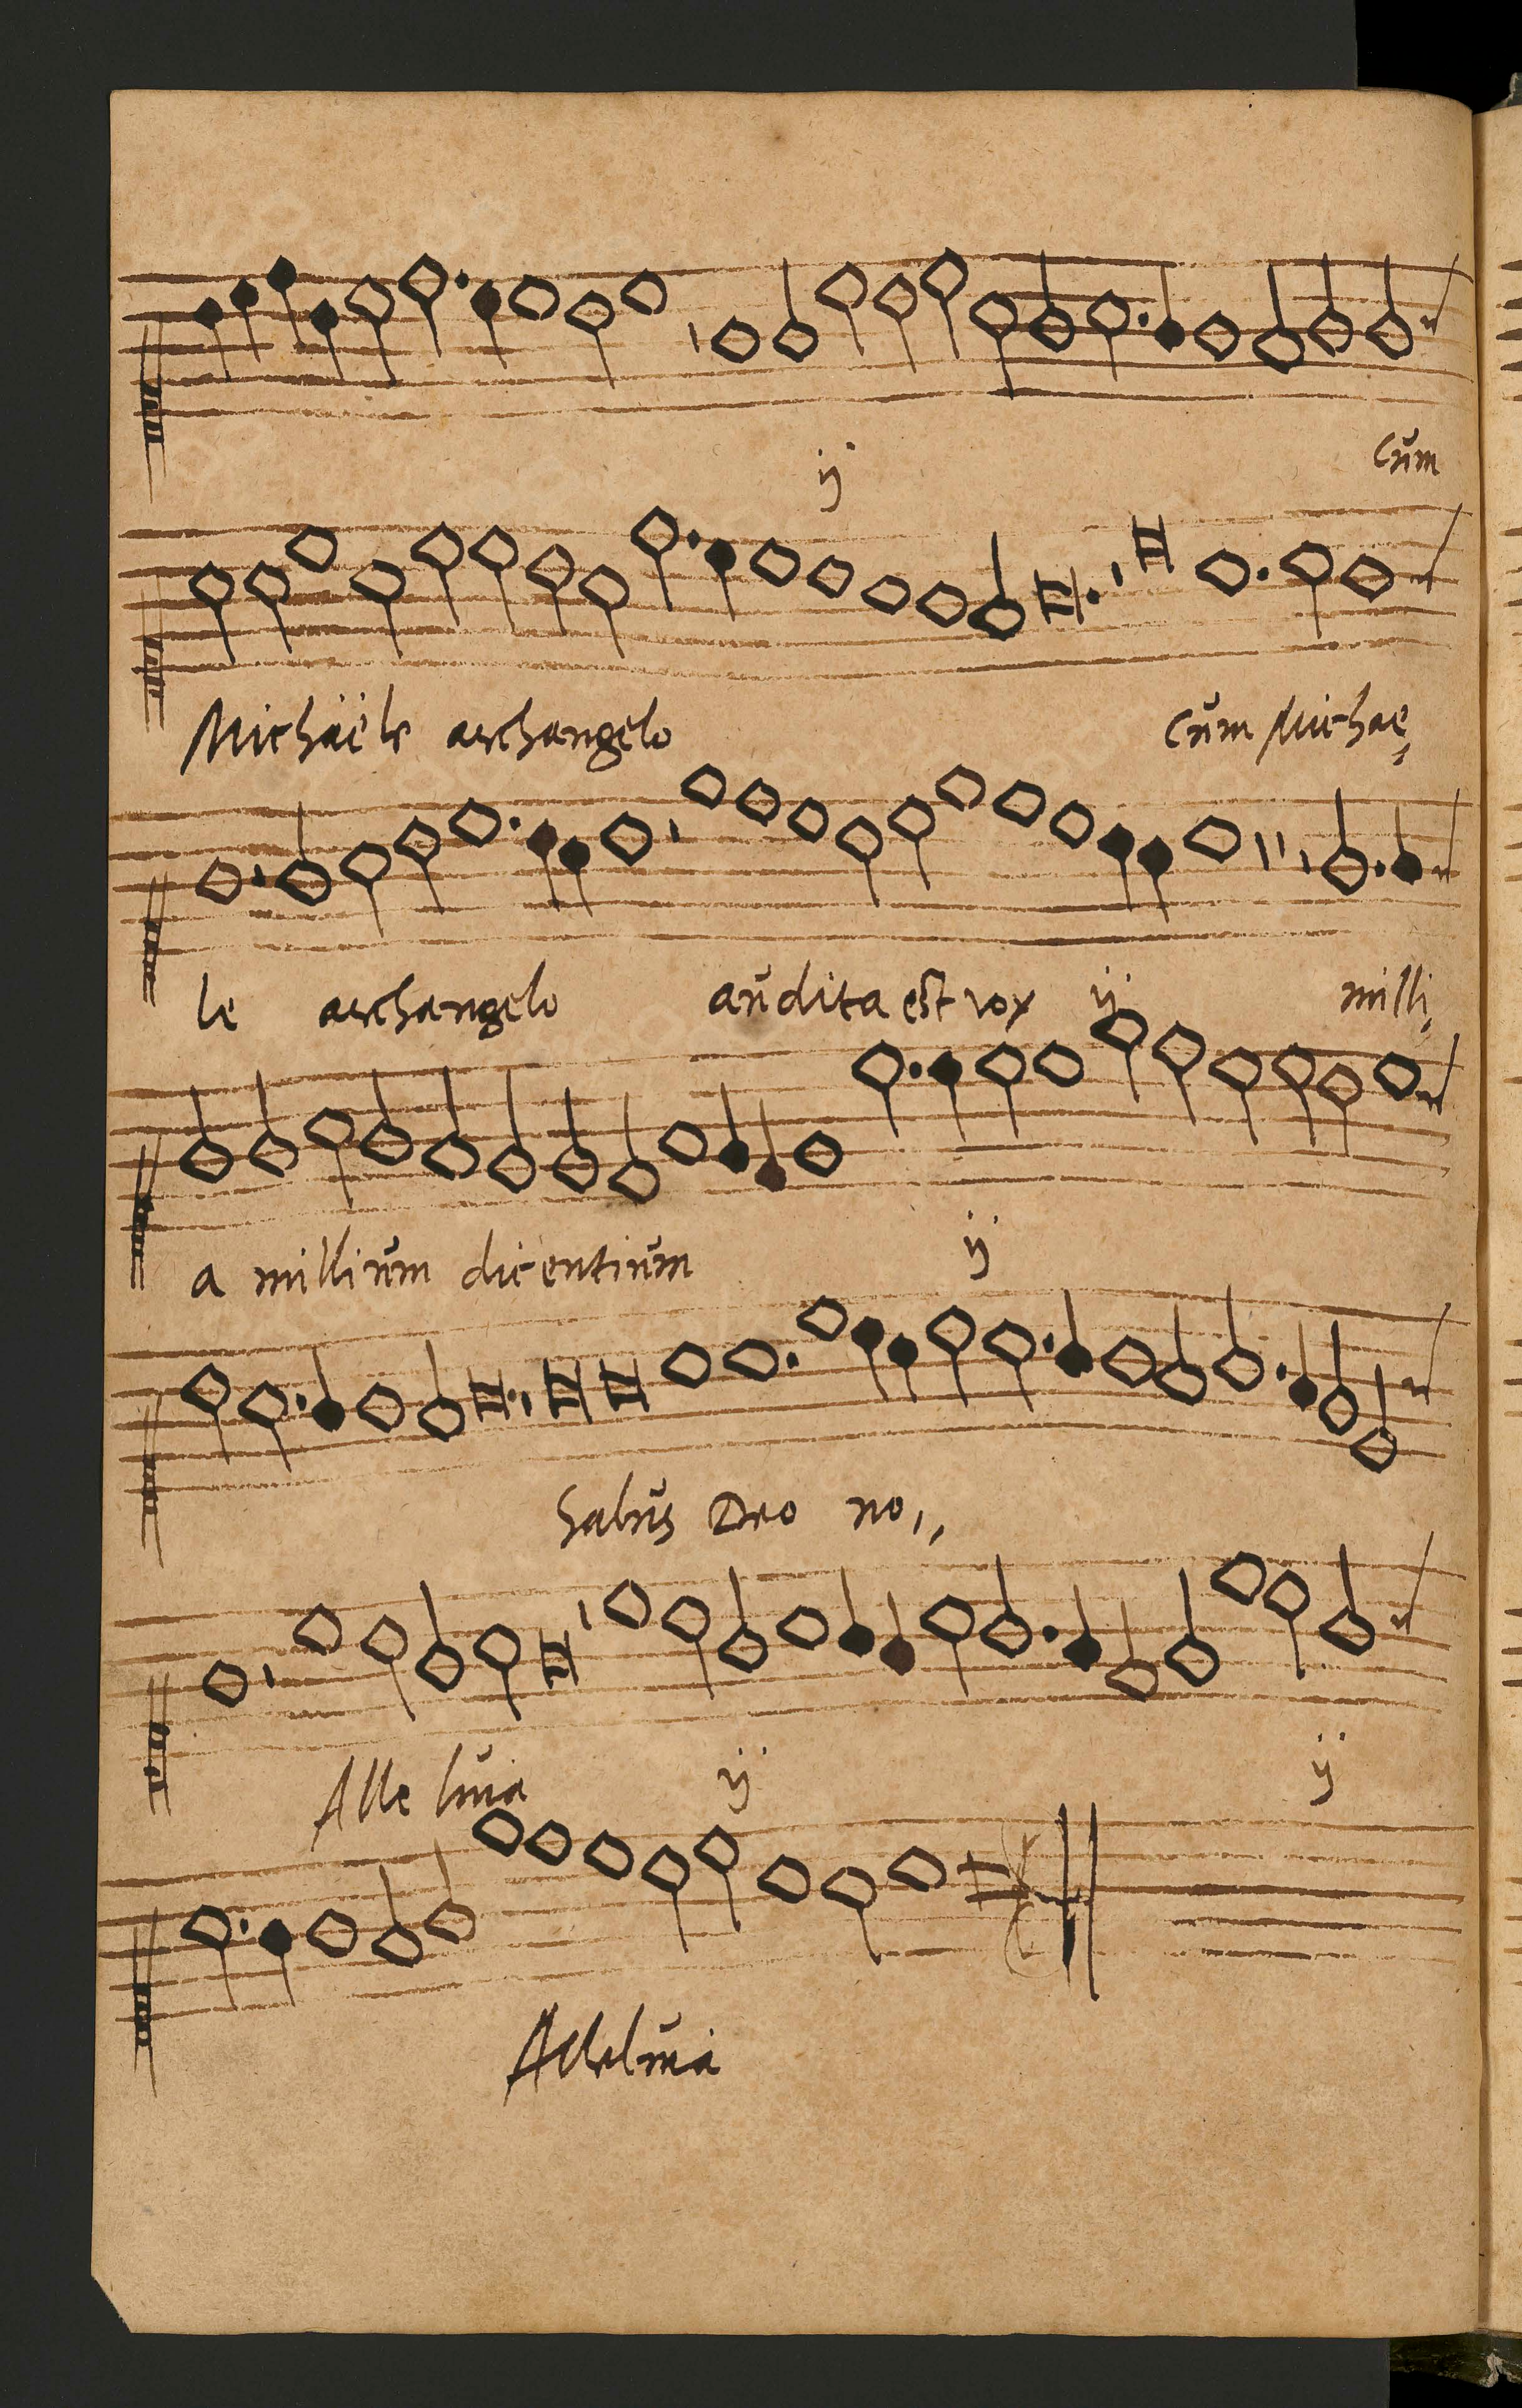 ij cům
Michäële archangelo cům Michae,
le archangelo aůdita est vox ij milli,
a milliům dicentiům ij
Salůs Deo no,,
Alle lůia ij ij
Allelůia